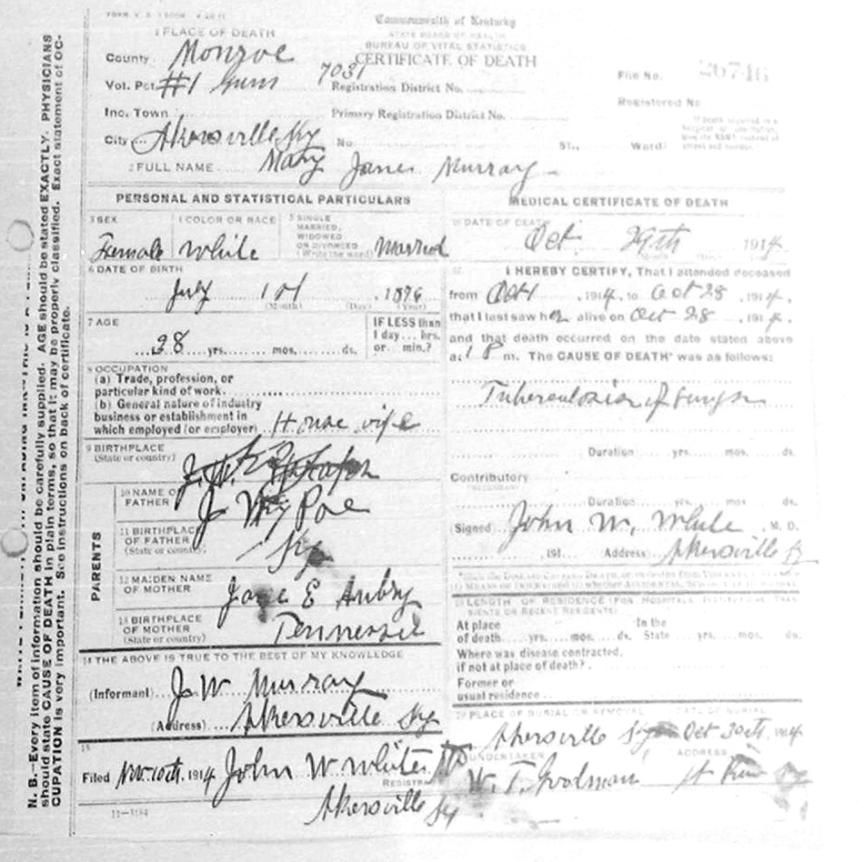 Commonwealth of Kentucky
STATE BOARD OF HEALTH
BUREAU OF VITAL STATISTICS
CERTIFICATE OF DEATH
1 PLACE OF DEATH
County Monroe
Vot. Pct. #1 7031 Registration District No.
File No. 26746
Inc. Town Primary Registration District No.
Registered No
City Akersville Ky No. St., Ward)
2 FULL NAME Mary Jane Murray
PERSONAL AND STATISTICAL PARTICULARS
3 SEX Female
4 COLOR OR RACE White
5 SINGLE
MARRIED,
WIDOWED
OR DIVORCED
(Write the word) Married
6 DATE OF BIRTH
July 1st, 1896
(Month) (Day) (Year)
7 AGE
28 yrs. mos. ds.
IF LESS than
1 day... hrs.
or... min.?
8 OCCUPATION
(a) Trade, profession, or
particular kind of work
(b) General nature of industry
business or establishment in
which employed (or employer) House wife
9 BIRTHPLACE
(State or country)
PARENTS
10 NAME OF
FATHER J Poe
11 BIRTHPLACE
OF FATHER
(State or country) Ky
12 MAIDEN NAME
OF MOTHER Jane E Aubry
13 BIRTHPLACE
OF MOTHER
(State or country) Tennessee
14 THE ABOVE IS TRUE TO THE BEST OF MY KNOWLEDGE
(Informant) J. W. Murray
(Address) Akersville Ky
15
Filed Nov. 10th, 1914 John W White MD
REGISTRAR
Akersville Ky
11-3184
MEDICAL CERTIFICATE OF DEATH
16 DATE OF DEATH
Oct 29th 1914
17 I HEREBY CERTIFY, That I attended deceased
from Oct 1, 1914, to Oct 28, 1914,
that I last saw her alive on Oct 28, 1914,
and that death occurred on the date stated above
at 1 P m. The CAUSE OF DEATH* was as follows:
Tuberculosis of lungs
Duration yrs. mos. ds.
Contributory
Duration yrs. mos. ds.
(Signed) John W. White, M. D.
, 191 Address) Akersville Ky
18 LENGTH OF RESIDENCE (FOR HOSPITALS, INSTITUTIONS, TRANSIENTS OR RECENT RESIDENTS)
At place In the
of death yrs. mos. ds. State yrs. mos. ds.
Where was disease contracted,
if not at place of death?
Former or
usual residence
19 PLACE OF BURIAL OR REMOVAL DATE OF BURIAL
Akersville Ky Oct 30th, 1914
UNDERTAKER ADDRESS
W. T. Goodman
N. B.—Every item of information should be carefully supplied. AGE should be stated EXACTLY. PHYSICIANS
should state CAUSE OF DEATH in plain terms, so that it may be properly classified. Exact statement of OC-
CUPATION is very important. See instructions on back of certificate.